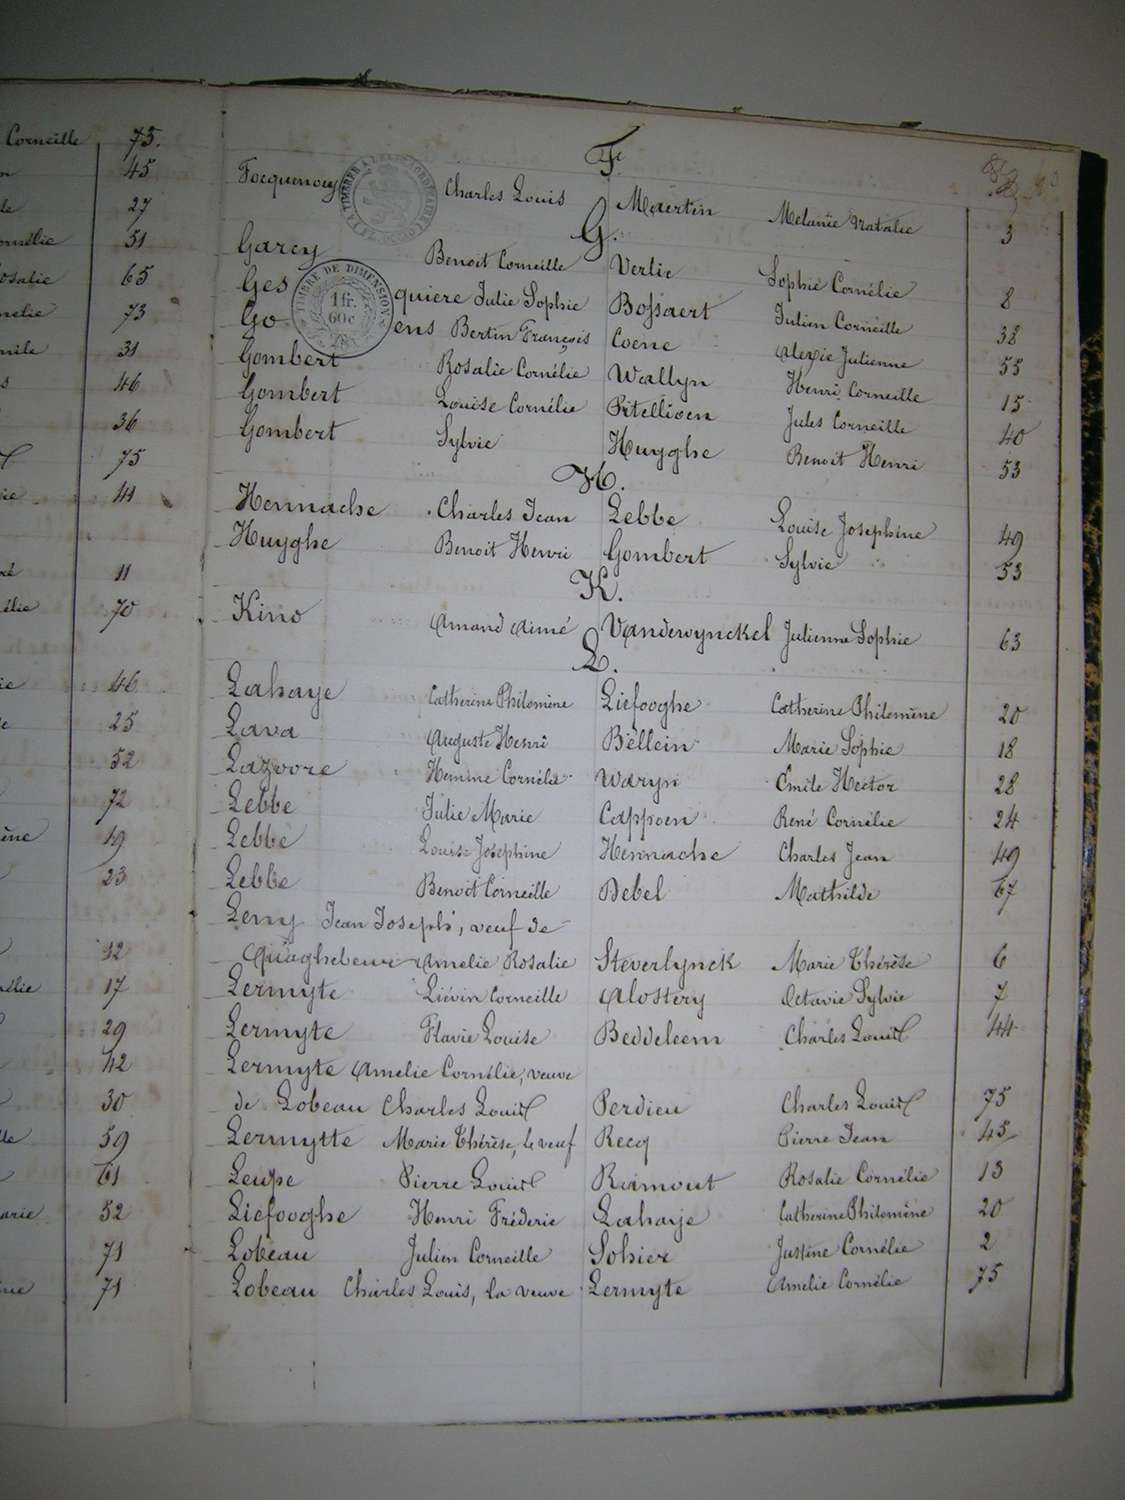 Corneille 75.
45
27
51
65
73
31
46
36
75
41
11
70
46
25
52
72
19
23
12
17
29
42
30
59
61
52
71
71
F.
Focquenoey Charles Louis Maertin Melanie Natalie 3
G.
Garcy Benoit Corneille Verlie Sophie Cornélie 8
Gesquiere Julie Sophie Bossaert Julien Corneille 38
Goens Bertin François Coene Alexie Julienne 55
Gombert Rosalie Cornélie Wallyn Henri Corneille 15
Gombert Louise Cornélie Pitellioen Jules Corneille 40
Gombert Sylvie Huyghe Benoit Henri 53
TIMBRE DE DIMENSION
1 fr.
60c
H.
Hennache Charles Jean Lebbe Louise Josephine 49
Huyghe Benoit Henri Gombert Sylvie 53
K.
Kino Amand Aimé Vandewynckel Julienne Sophie 63
L.
Lahaye Catherine Philomène Liefooghe Catherine Philomène 20
Lava Auguste Henri Bellein Marie Sophie 18
Lazoore Hemine Cornélie Waryn Émile Hector 28
Lebbe Julie Marie Cappoen René Cornélie 24
Lebbe Louise Josephine Hennache Charles Jean 49
Lebbe Benoit Corneille Debel Mathilde 67
Lemy Jean Joseph, veuf de
Quaghebeur Amelie Rosalie Steverlynck Marie Thérèse 6
Lermyte Liévin Corneille Alostery Octavie Sylvie 7
Lermyte Flavie Louise Beddeleem Charles Louis 44
Lermyte Amelie Cornélie, veuve
de Lobeau Charles Louis Perdieu Charles Louis 75
Lermytte Marie Thérèse, le veuf Recq Pierre Jean 45
Leupe Pierre Louis Ramout Rosalie Cornélie 13
Liefooghe Henri Fréderic Lahaye Catherine Philomène 20
Lobeau Julien Corneille Sohier Justine Cornélie 2
Lobeau Charles Louis, la veuve Lermyte Amelie Cornélie 75